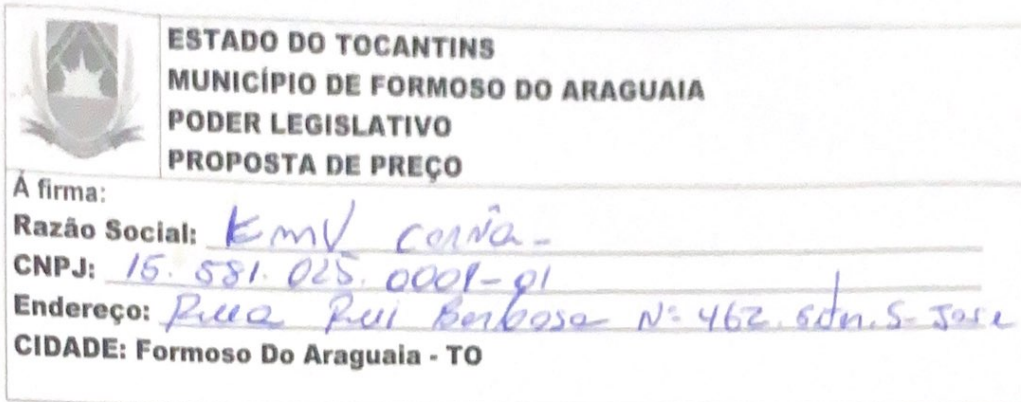 ESTADO DO TOCANTINS
MUNICÍPIO DE FORMOSO DO ARAGUAIA
PODER LEGISLATIVO
PROPOSTA DE PREÇO
Á firma:
Razão Social: EMV
CNPJ: 15.581.025.0001-01
Endereço: Rua Rui Barbosa Nº 462. S. José
CIDADE: Formoso Do Araguaia - TO